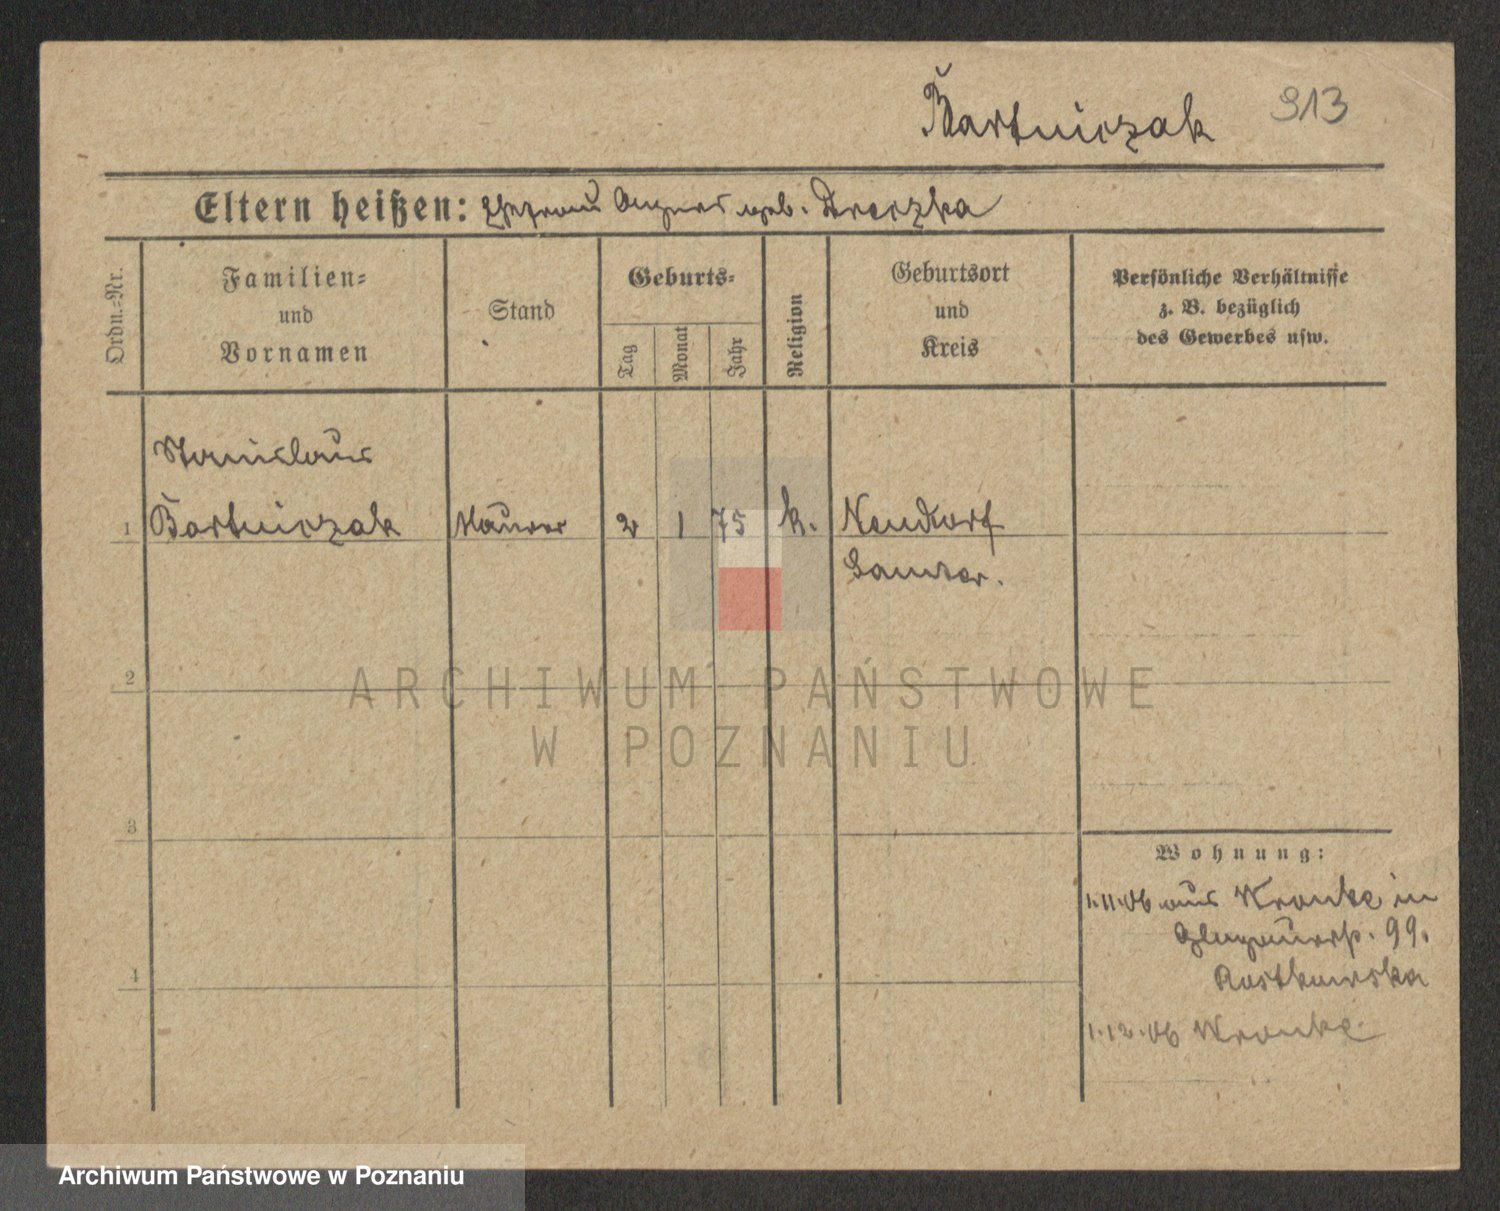 Bartniczak 913
Eltern heißen: Ehefrau Agnes geb. Droczka
Ordn.-Nr.
Familien-
und
Vornamen
Stand
Geburts-
Tag
Monat
Jahr
Religion
Geburtsort
und
Kreis
Persönliche Verhältnisse
z. B. bezüglich
des Gewerbes usw.
Stanislaus
1 Bartniczak Maurer 2 1 75 k. Neudorf
Samter.
2
ARCHIWUM PAŃSTWOWE
W POZNANIU
3
Wohnung:
1.11.06 aus Wronke in
99.
4
Rostkowska
1.12.06 Wronke
Archiwum Państwowe w Poznaniu